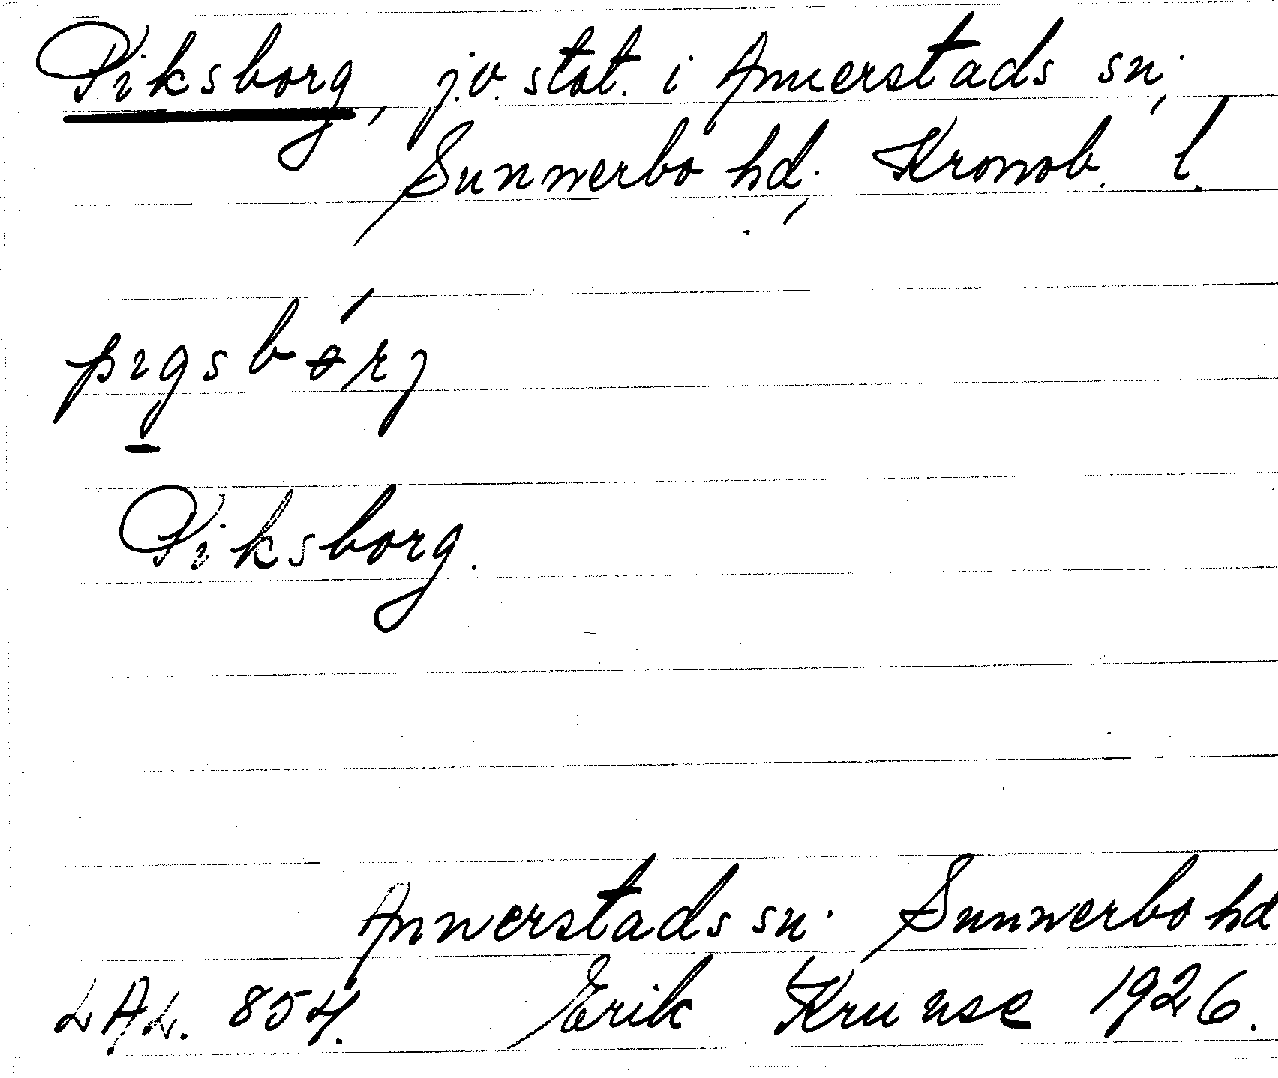 Piksborg, j.v. stat. i Annerstads sn;
Sunnerbo hd; Kronob. l.
pıgsbórȷ
Piksborg.
Annerstads sn. Sunnerbo hd
LAL. 854. Erik Kruuse 1926.